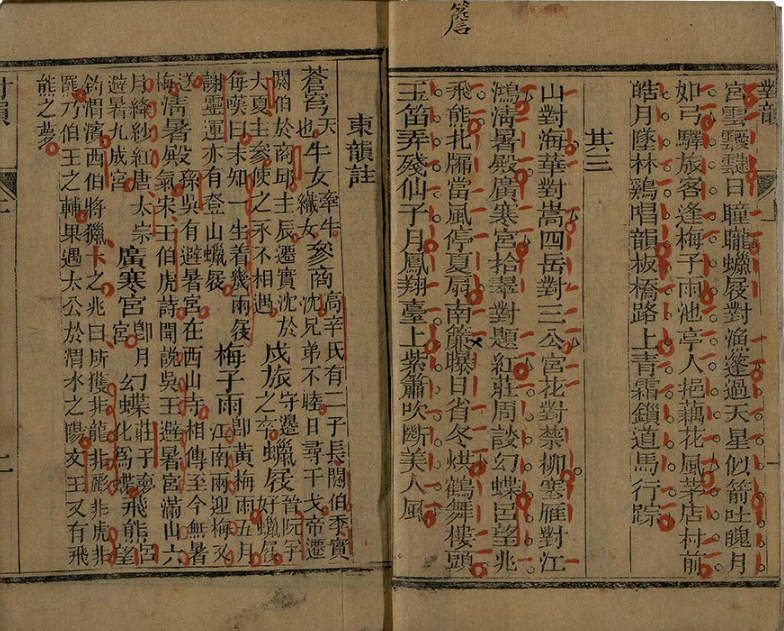 簷
對韻
宮雲靉靆日曈曨蠟屐對漁蓬過天星似箭吐魄月
如弓驛旅客逢梅子雨池亭人挹藕花風茅店村前
皓月墜林鷄唱韻板橋路上青霜鎖道馬行踪
其三
山對海華對嵩四岳對三公宮花對禁柳塞雁對江
鴻清暑殿廣寒宮拾翠對題紅莊周談幻蝶呂望兆
飛熊北牖當風停夏扇南簾曝日省冬烘鶴舞樓頭
玉笛弄殘仙子月鳳翔臺上紫簫吹斷美人風
東韻註
蒼穹天也牛女牽牛織女參商高辛氏有二子長閼伯季實沈兄弟不睦日尋干戈帝遷
閼伯於商邱主辰遷實沈於大夏主參使之永不相遇戍旅守邊之卒蠟屐晉阮孚好蠟屐
每嘆曰未知一生着幾兩屐謝靈運亦有登山蠟屐梅子雨即黃梅雨五月江南雨迎梅又
送梅清暑殿孫吳有避暑宮在西山寺相傳至今無暑氣宋王伯虎詩聞說吳王避暑宮滿山六
月絺紗紅唐太宗避暑九成宮廣寒宮即月宮幻蝶莊子夢化為蝶飛熊呂望
釣渭濱西伯將獵卜之兆曰所獲非龍非彲非虎非羆乃伯王之輔果遇太公於渭水之陽文王又有飛
熊之夢
對韻